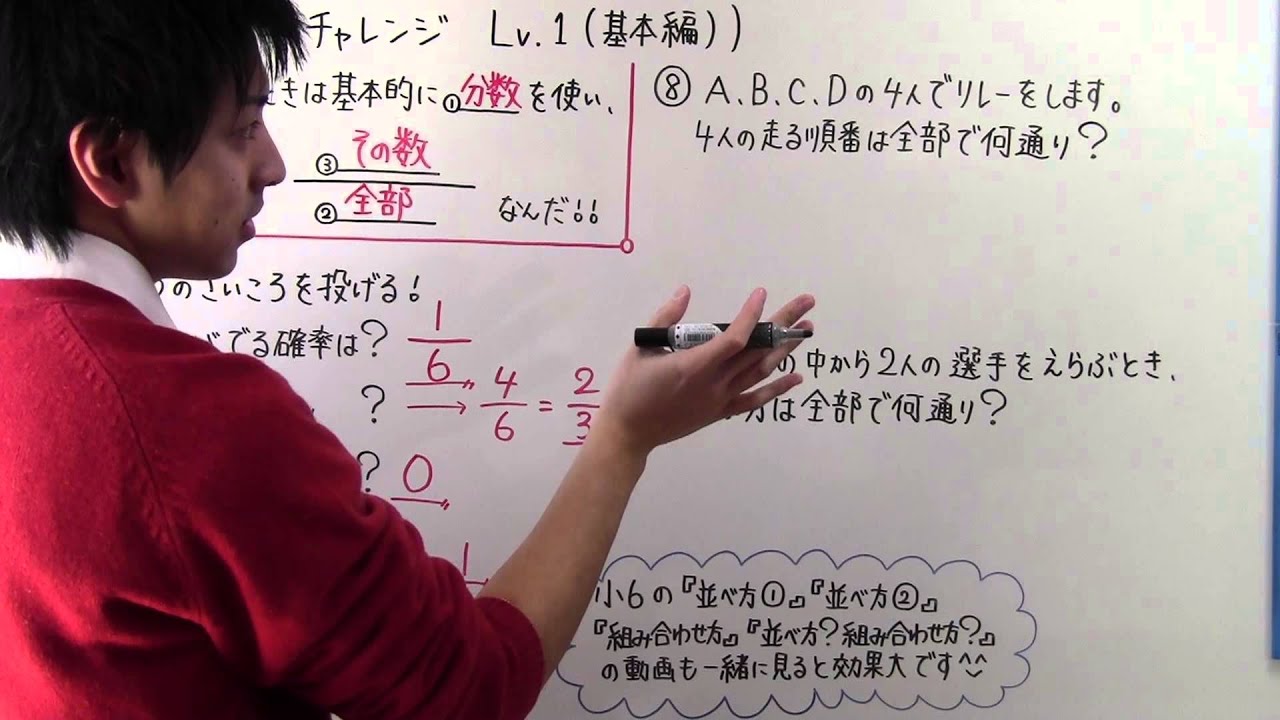 チャレンジ Lv.1（基本編））
きは基本的に①分数を使い、
③その数
②全部
なんだ！！
のさいころを投げる！
でる確率は？ 1/6
？ → 4/6 = 2/3
？ 0
1
⑧ A、B、C、Dの4人でリレーをします。
4人の走る順番は全部で何通り？
の中から2人の選手をえらぶとき、
方は全部で何通り？
小6の『並べ方①』『並べ方②』
『組み合わせ方』『並べ方？組み合わせ方？』
の動画も一緒に見ると効果大です^^